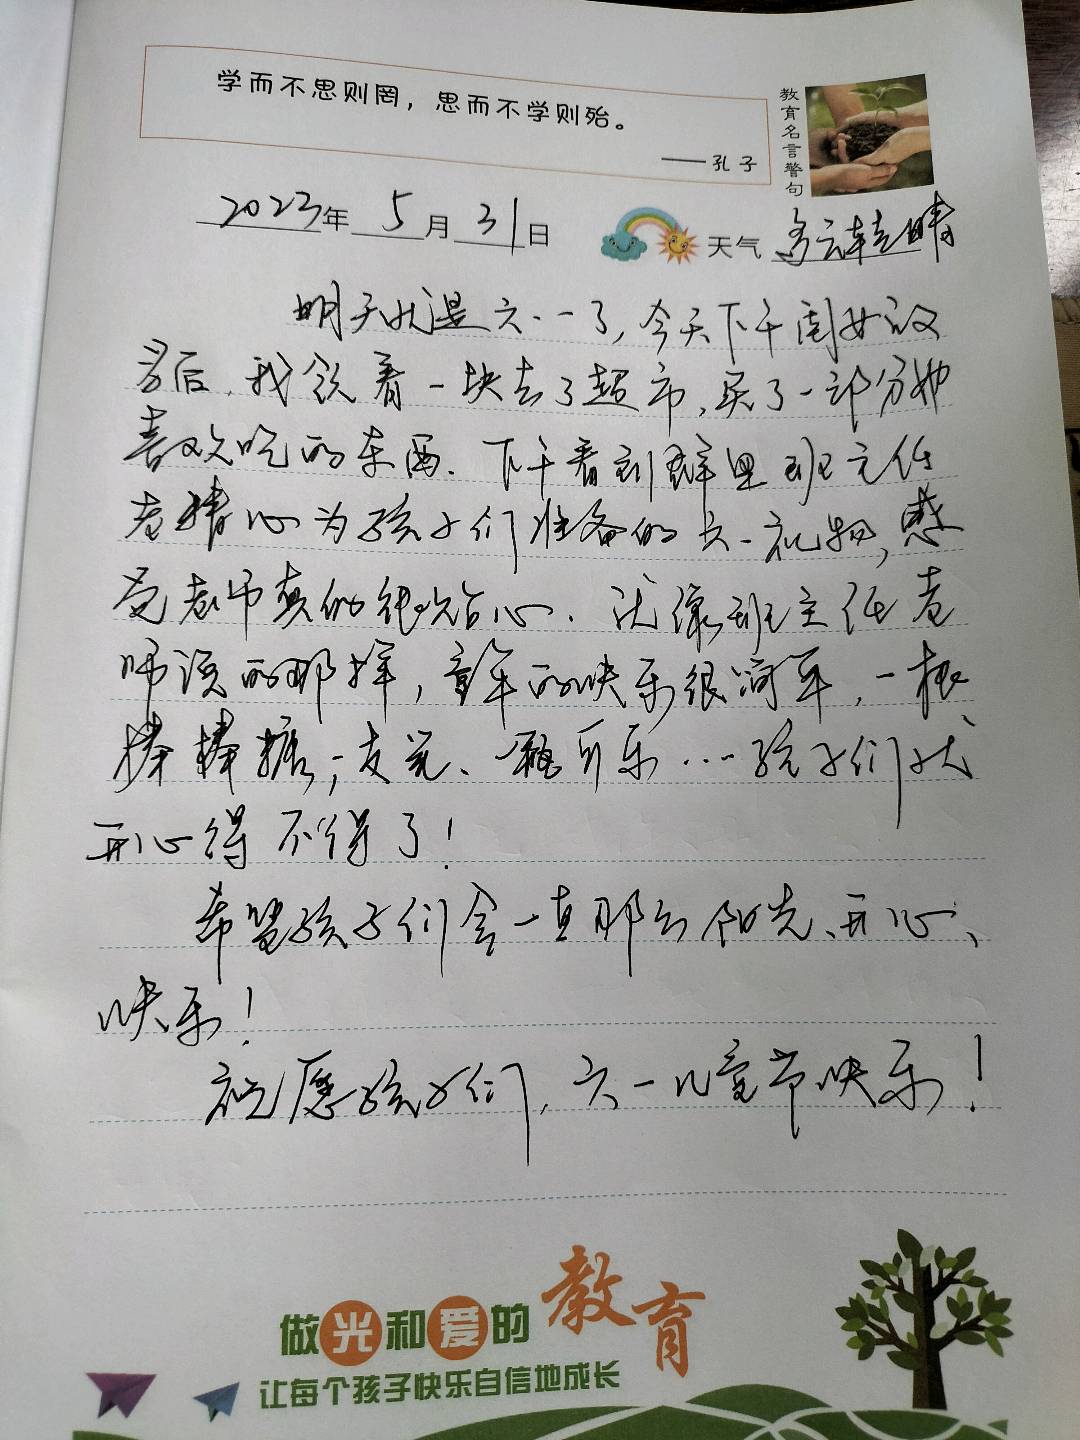 学而不思则罔，思而不学则殆。
——孔子
教育名言警句
2023年5月31日
天气 多云转晴
明天就是六·一了，今天下午闺女放
学后，我领着一块去了超市，买了一部分她
喜欢吃的东西、下午看到群里班主任
老精心为孩子们准备的六一礼物，感
觉老师真的很贴心．就像班主任老
师说的那样，童年的快乐很简单，一根
棒棒糖，一支、一瓶可乐……孩子们就
开心得不得了！
希望孩子们会一直那么阳光、开心、
快乐！
祝愿孩子们，六一儿童节快乐！
做光和爱的教育
让每个孩子快乐自信地成长